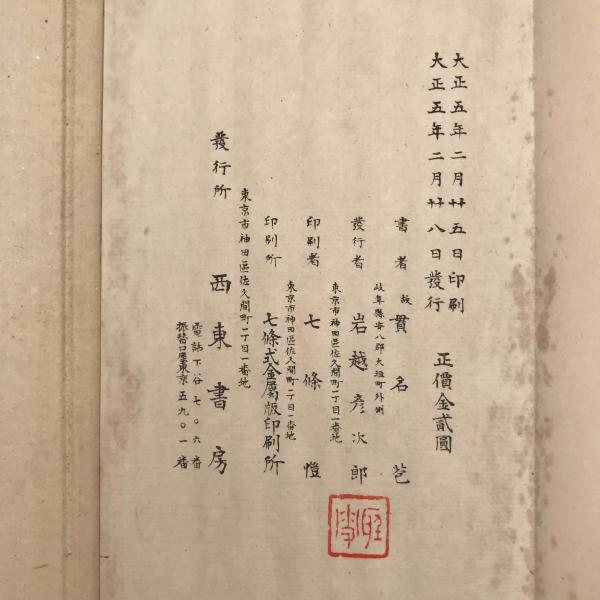 大正五年二月廿五日印刷
大正五年二月廿八日發行
正價金貳圓
書者 故 貫名苞
岐阜縣安八郡大垣町外側
發行者 岩越彦次郎
東京市神田區佐久間町二丁目一番地
印刷者 七條愷
東京市神田區佐久間町二丁目一番地
印刷所 七條式金屬版印刷所
東京市神田區佐久間町一丁目一番地
發行所 西東書房
電話下谷七〇六番
振替口座東京五九〇一番